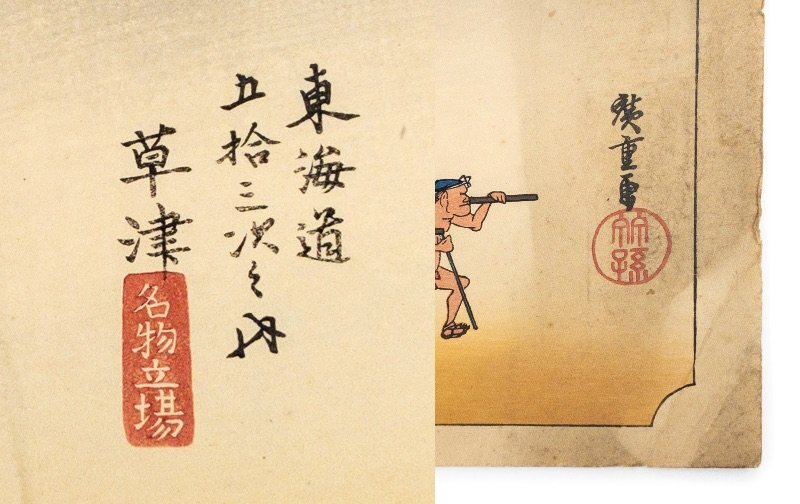 東海道
五拾三次之内
草津
名物立場
廣重画
竹孫